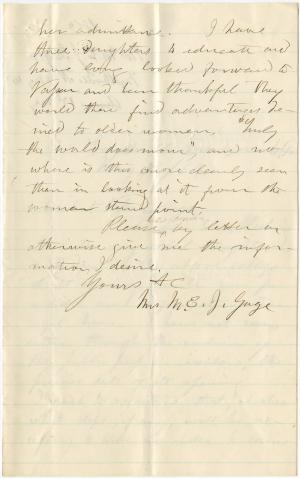 her admittance. I have
three daughters to educate and
have long looked forward to
Vassar and been thankful they
would there find advantages de-
nied to older women. "Truly
the world does move" and no
where is this more clearly seen
than in looking at it from the
woman stand point.
Please, by letter or
otherwise give me the infor-
mation I desire.
Yours &c
Mrs M. E. J. Gage